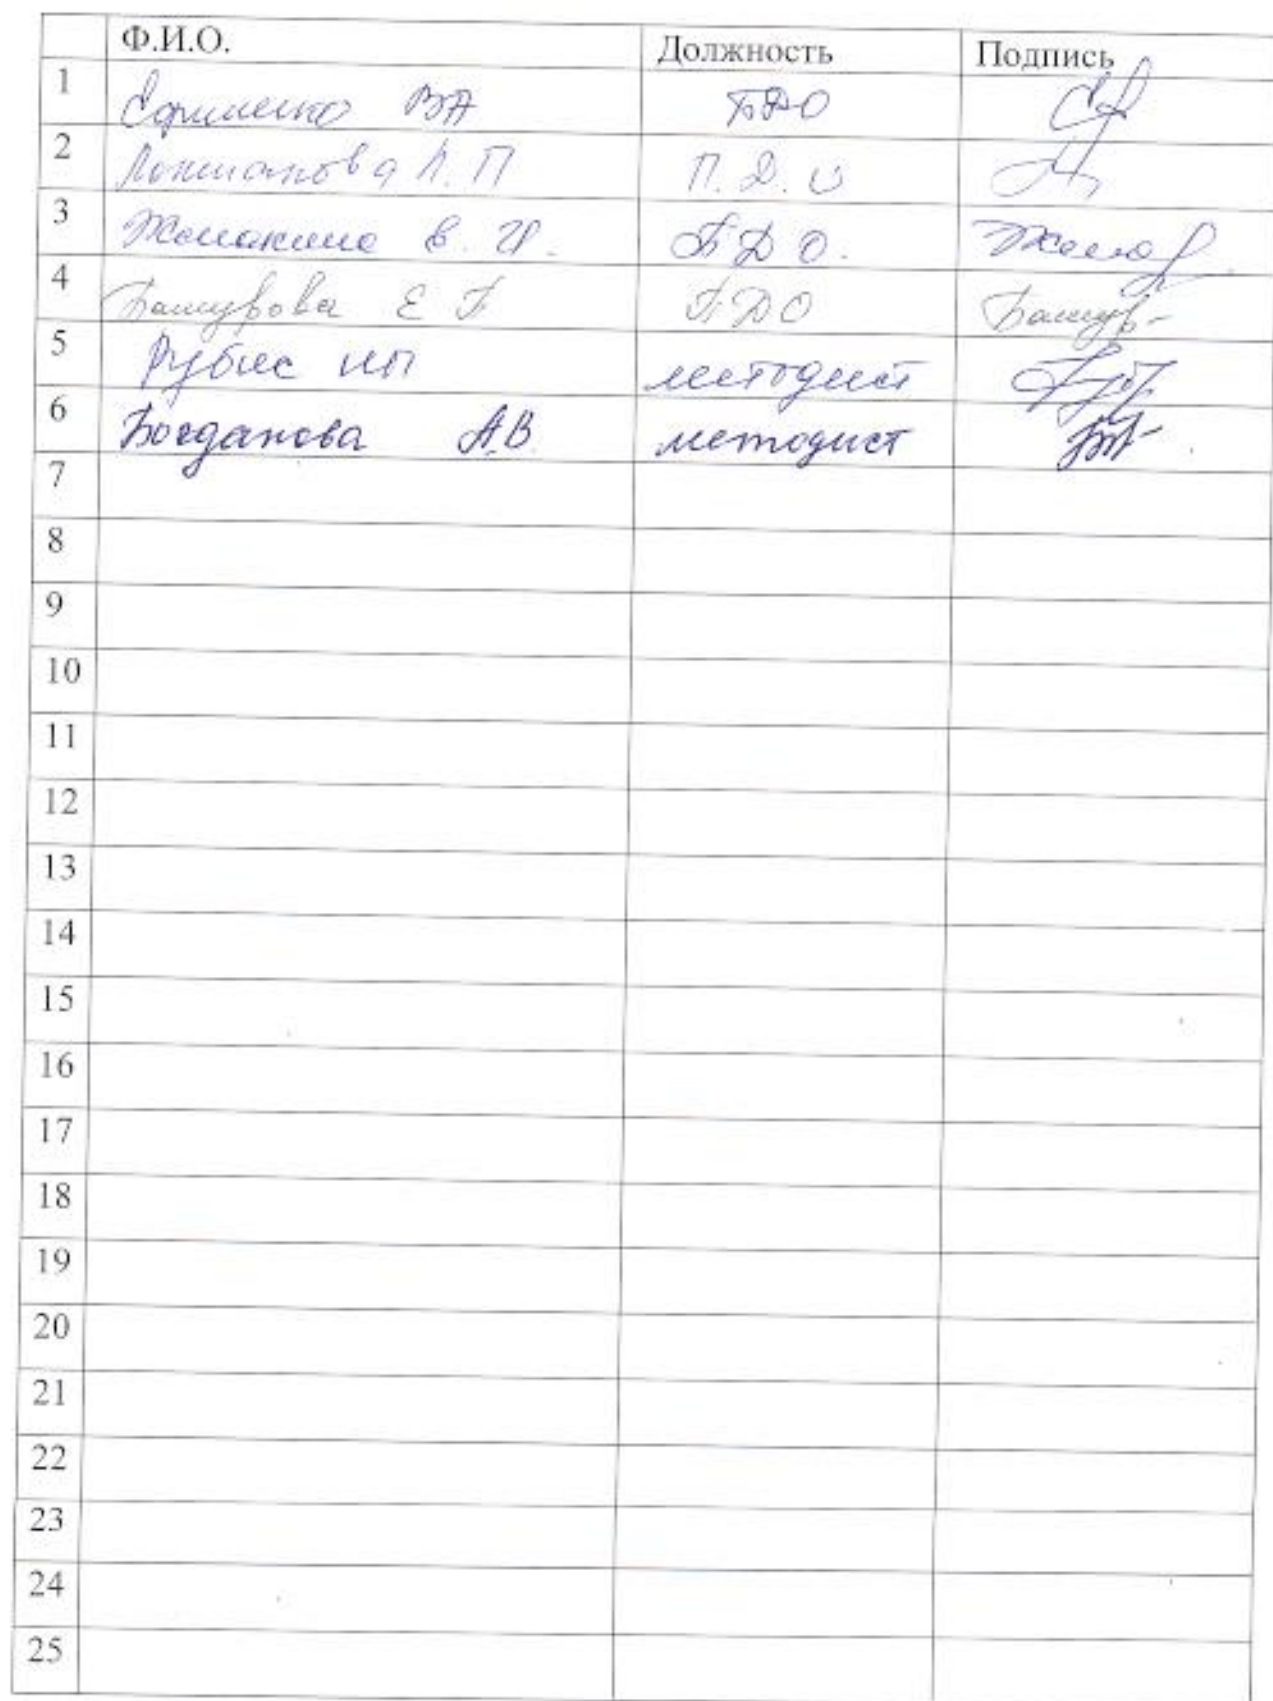 Ф.И.О. Должность Подпись
1 ВА ПДО
2 Л.П П.Д.О
3 В. И. ПДО.
4 Башурова Е Г ПДО Башур-
5 Рубис ИП методист
6 Богданова А.В. методист
7
8
9
10
11
12
13
14
15
16
17
18
19
20
21
22
23
24
25